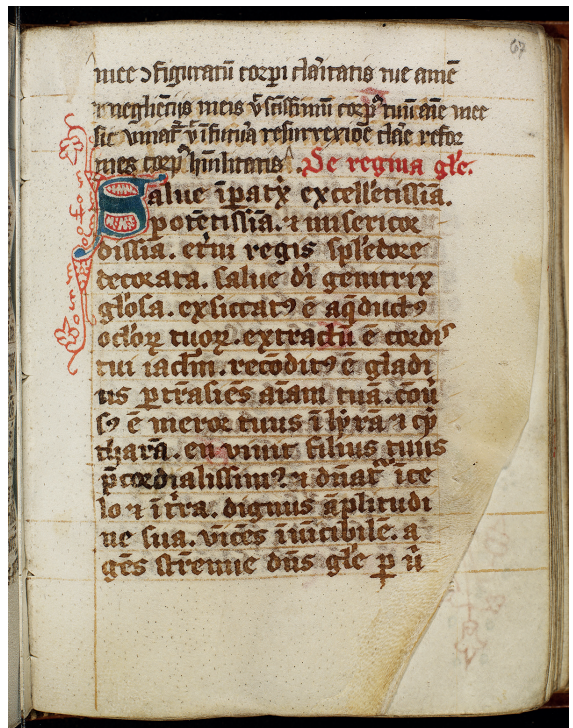 67
mee ↄfiguratū corpi claritatis tue amē
negligētijs meis
sic resurrexiōe clare refor
mes corpꝰ hūilitatis . De regina gl̄e.
Salue īpatx excellētissīa.
potētissīa. ⁊ misericor
dissīa. et̄ni regis splēdore
decorata. salue dī genitrix
gl̄osa. exsiccatꝰ ē aq̄ductꝰ
oclōꝝ tuoꝝ. extractū ē cordis
tui iaclm̄. recōditꝰ ē gladi
us ꝑtrāsiēs aīam tuā. cōū
sꝰ ē meror tuus ī lyrā ⁊ cy
tharā. en viuit filius tuus
p̄cordialissimꝰ ⁊ dn̄atᷣ ī ce
lo ⁊ ī t̄ra. dignus āplitudi
ne sua. vicēs īuīcibilē. a
gēs strenue dn̄s gl̄e ꝑ ū